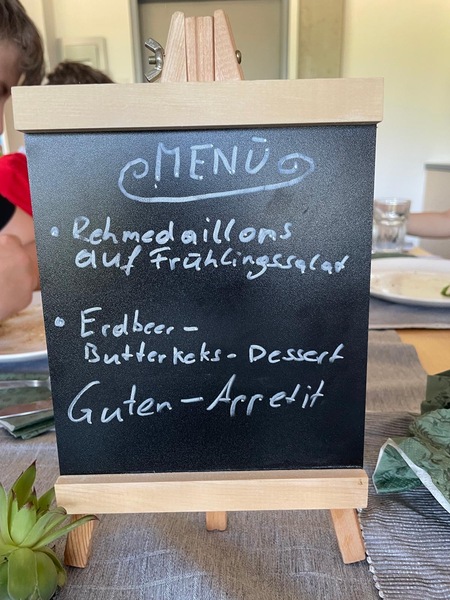 MENÜ
• Rehmedaillons
auf Frühlingssalat
• Erdbeer-
Butterkeks-Dessert
Guten-Appetit